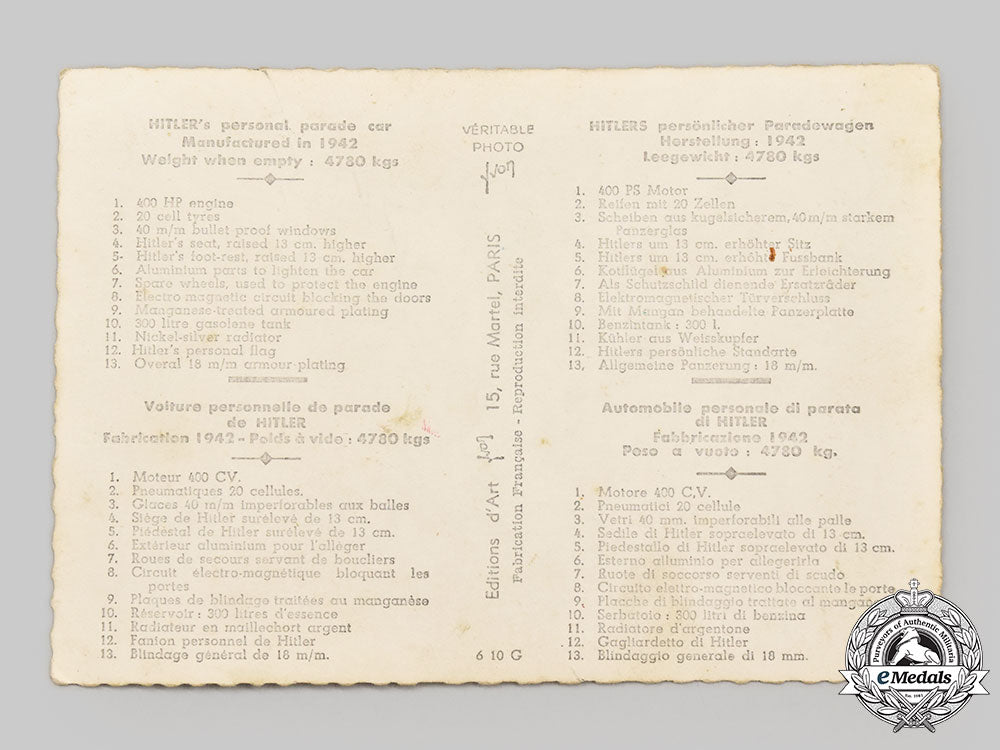 HITLER's personal parade car
Manufactured in 1942
Weight when empty : 4780 kgs
1. 400 HP engine
2. 20 cell tyres
3. 40 m/m bullet-proof windows
4. Hitler's seat, raised 13 cm. higher
5- Hitler's foot-rest, raised 13 cm. higher
6. Aluminium parts to lighten the car
7. Spare wheels, used to protect the engine
8. Electro magnetic circuit blocking the doors
9. Manganese-treated armoured plating
10. 300 litre gasolene tank
11. Nickel-silver radiator
12. Hitler's personal flag
13. Overal 18 m/m armour-plating
Voiture personnelle de parade
de HITLER
Fabrication 1942 - Poids à vide : 4780 kgs
1. Moteur 400 CV.
2. Pneumatiques 20 cellules.
3. Glaces 40 m/m imperforables aux balles
4. Siège de Hitler surélevé de 13 cm.
5. Piédestal de Hitler surélevé de 13 cm.
6. Extérieur aluminium pour l'alléger
7. Roues de secours servant de boucliers
8. Circuit électro-magnétique bloquant les
portes
9. Plaques de blindage traitées au manganèse
10. Réservoir : 300 litres d'essence
11. Radiateur en maillechort argent
12. Fanion personnel de Hitler
13. Blindage général de 18 m/m.
VÉRITABLE
PHOTO
yvon
Editions d'Art yvon 15, rue Martel, PARIS
Fabrication Française - Reproduction interdite
6 10 G
HITLERS persönlicher Paradewagen
Herstellung : 1942
Leegewicht : 4780 kgs
1. 400 PS Motor
2. Reifen mit 20 Zellen
3. Scheiben aus kugelsicherem, 40 m/m starkem
Panzerglas
4. Hitlers um 13 cm. erhöhter Sitz
5. Hitlers um 13 cm. erhöhte Fussbank
6. Kotflügel aus Aluminium zur Erleichterung
7. Als Schutzschild dienende Ersatzräder
8. Elektromagnetischer Türverschluss
9. Mit Mangan behandelte Panzerplatte
10. Benzintank : 300 l.
11. Kühler aus Weisskupfer
12. Hitlers persönliche Standarte
13, Allgemeine Panzerung : 18 m/m.
Automobile personale di parata
di HITLER
Fabbricazione 1942
Peso a vuoto : 4780 kg.
1. Motore 400 C.V.
2. Pneumatici 20 cellule
3. Vetri 40 mm. imperforabili alle palle
4. Sedile di Hitler sopraelevato di 13 cm.
5. Piedestallo di Hitler sopraelevato di 13 cm.
6. Esterno alluminio per allegerirla
7. Ruote di soccorso serventi di scudo
8. Circuito elettro-magnetico bloccante le porte
9. Placche di blindaggio trattate al
10. Serbatoio : 300 litri di benzina
11. Radiatore d'argentone
12. Gagliardetto di Hitler
13. Blindaggio generale di 18 mm.
Purveyors of Authentic Militaria
eMedals